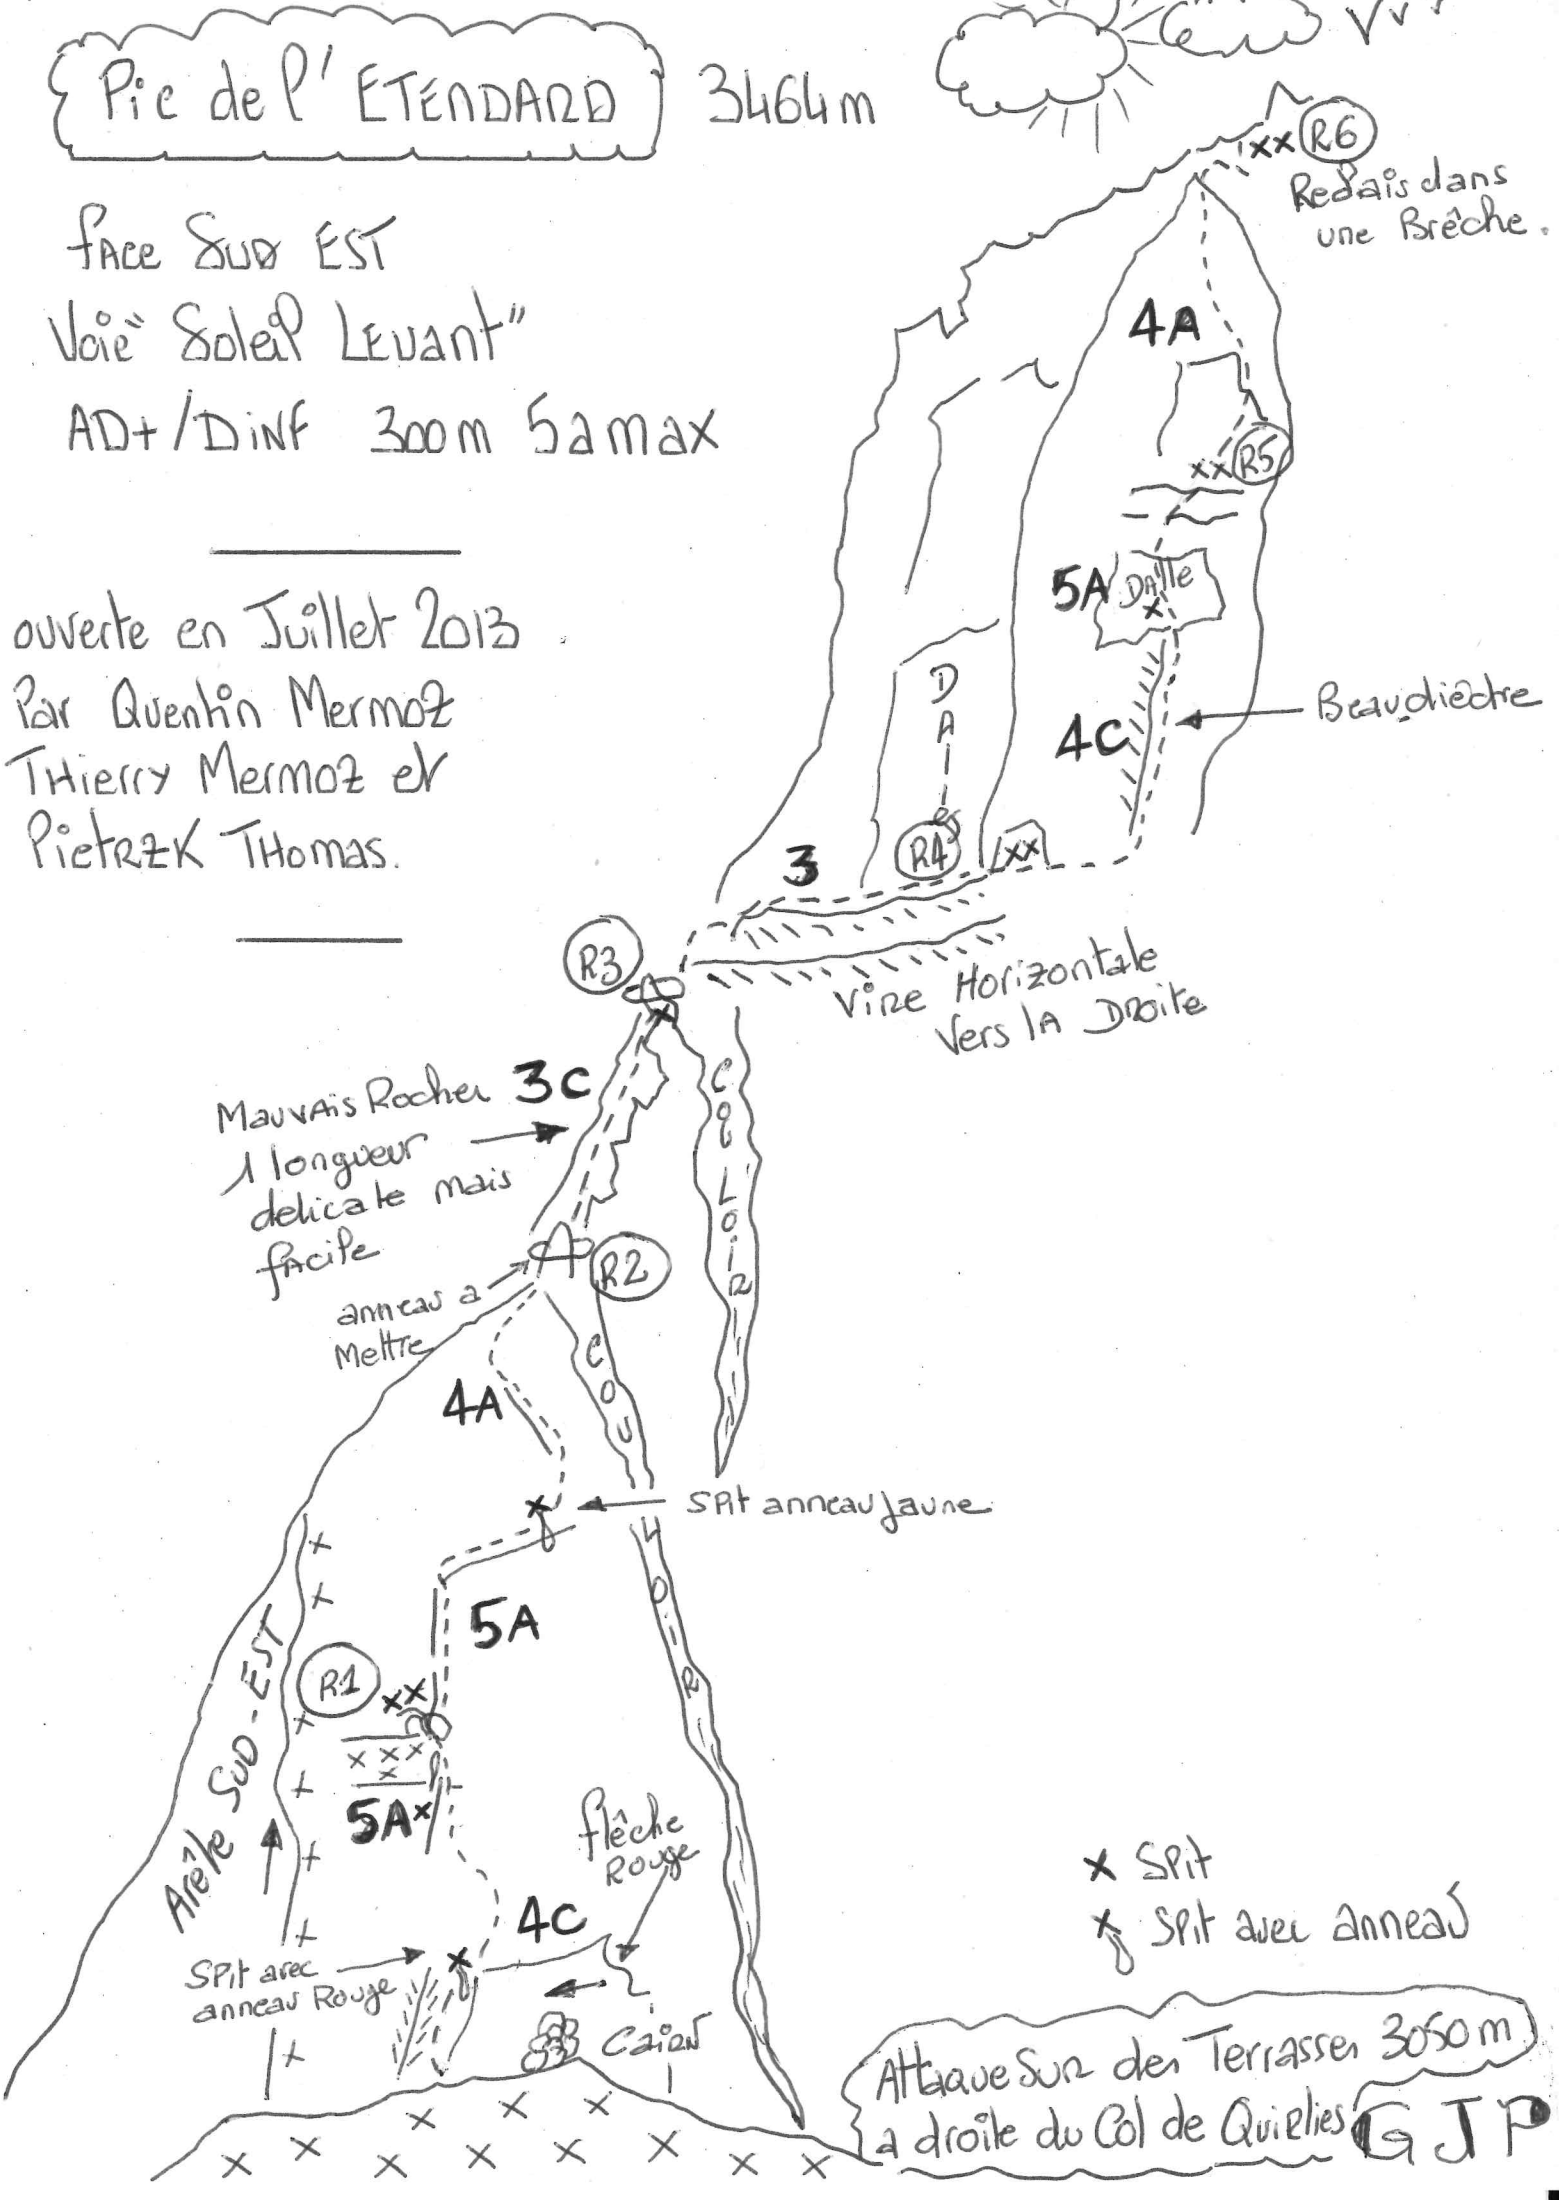 Pic de l'ETENDARD 3464m
face Sud EST
Voie "Soleil Levant"
AD+/Dinf 300m 5a max
ouverte en Juillet 2013
Par Quentin Mermoz
Thierry Mermoz et
PietRZK THomas.
R6
Relais dans
une Brêche.
4A
R5
5A Dalle
4C
Beau dièdre
DAlles
R4
3
R3
Vire Horizontale
Vers la Droite
3C
Mauvais Rocher
1 longueur
délicate mais
facile
COULOIR
R2
anneau a
Mettre
4A
COULOIR
Spit anneau Jaune
5A
R1
5A
Arête SUD-EST
flêche
Rouge
4C
Spit avec
anneau Rouge
Cairn
Spit
Spit avec anneau
Attaque Sur des Terrasses 3050m
a droite du Col de Quirlies
GJP